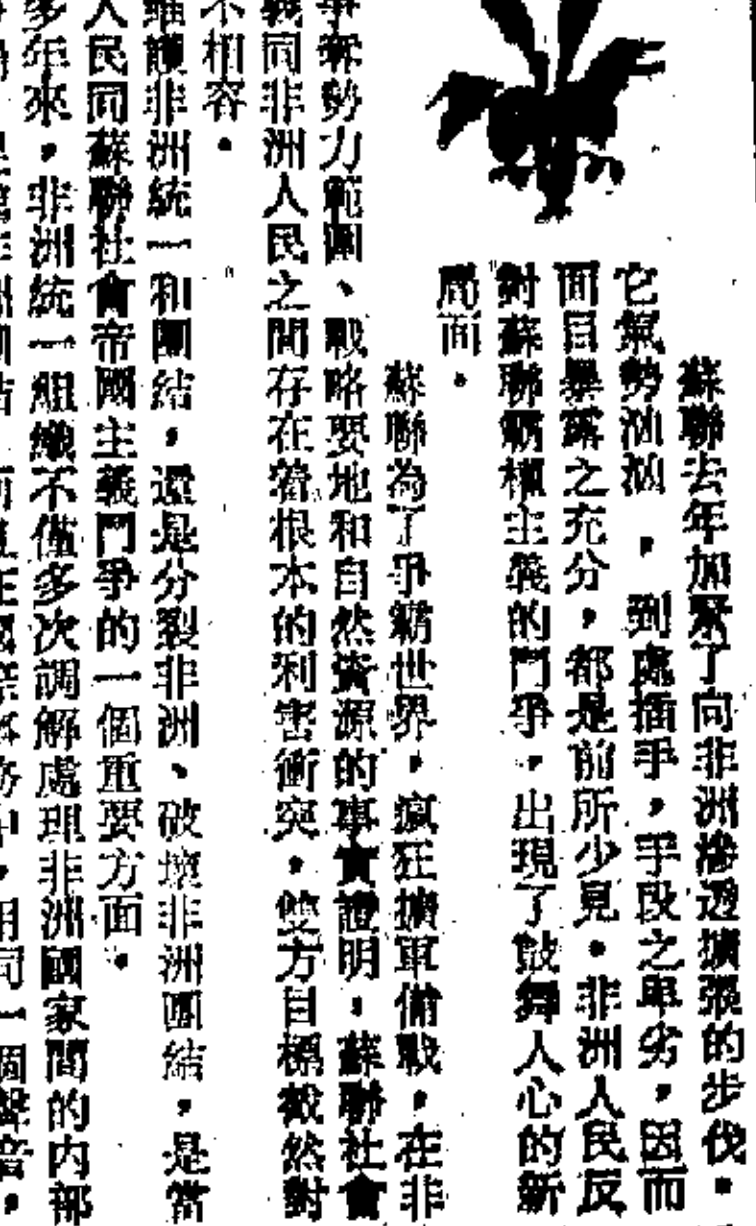 蘇聯去年加緊了向非洲滲透擴張的步伐。
它氣勢汹汹，到處插手，手段之卑劣，因而
面目暴露之充分，都是前所少見。非洲人民反
對蘇聯霸權主義的鬥爭，出現了鼓舞人心的新
局面。
蘇聯為了爭霸世界，瘋狂擴軍備戰，在非
爭奪勢力範圍、戰略要地和自然資源的事實證明，蘇聯社會
義同非洲人民之間存在着根本的利害衝突。雙方目標截然對
不相容。
維護非洲統一和團結，還是分裂非洲、破壞非洲團結，是當
人民同蘇聯社會帝國主義鬥爭的一個重要方面。
多年來，非洲統一組織不僅多次調解處理非洲國家間的内部
非洲團結，而且在國際事務中，用同一個聲音，